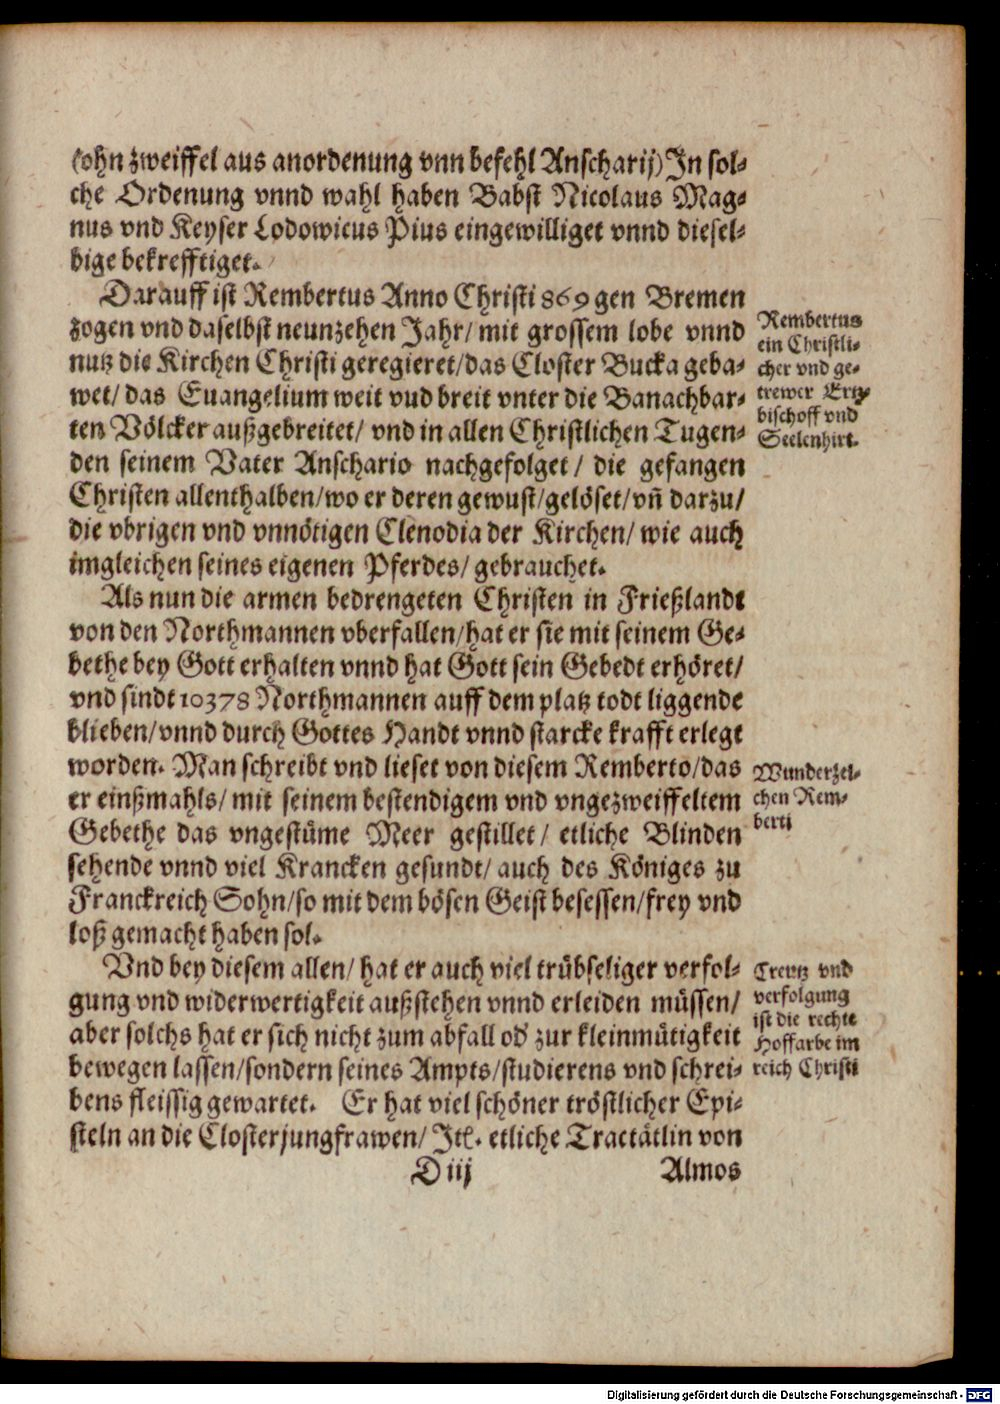 (ohn zweiffel aus anordenung vnn befehl Anscharij) In sol-
che Ordenung vnnd wahl haben Babst Nicolaus Mag-
nus vnd Keyser Lodowicus Pius eingewilliget vnnd diesel-
bige bekrefftiget.
Darauff ist Rembertus Anno Christi 869 gen Bremen
zogen vnd daselbst neunzehen Jahr/ mit grossem lobe vnnd
nutz die Kirchen Christi geregieret/das Closter Bucka geba-
wet/ das Euangelium weit vud breit vnter die Banachbar-
ten Völcker außgebreitet/ vnd in allen Christlichen Tugen-
den seinem Vater Anschario nachgefolget/ die gefangen
Christen allenthalben/wo er deren gewust/gelöset/vñ darzu/
die vbrigen vnd vnnötigen Clenodia der Kirchen/ wie auch
imgleichen seines eigenen Pferdes/ gebrauchet.
Als nun die armen bedrengeten Christen in Frießlandt
von den Northmannen vberfallen/hat er sie mit seinem Ge-
bethe bey Gott erhalten vnnd hat Gott sein Gebedt erhöret/
vnd sindt 10378 Northmannen auff dem platz todt liggende
blieben/vnnd durch Gottes Handt vnnd starcke krafft erlegt
worden. Man schreibt vnd lieset von diesem Remberto/das
er einßmahls/ mit seinem bestendigem vnd vngezweiffeltem
Gebethe das vngestüme Meer gestillet/ etliche Blinden
sehende vnnd viel Krancken gesundt/ auch des Königes zu
Franckreich Sohn/so mit dem bösen Geist besessen/frey vnd
loß gemacht haben sol.
Vnd bey diesem allen/ hat er auch viel trübseliger verfol-
gung vnd widerwertigkeit außstehen vnnd erleiden müssen/
aber solchs hat er sich nicht zum abfall od' zur kleinmütigkeit
bewegen lassen/sondern seines Ampts/studierens vnd schrei-
bens fleissig gewartet. Er hat viel schöner tröstlicher Epi-
steln an die Closterjungfrawen/ Itẽ. etliche Tractätlin von
D iij Almos
Rembertus
ein Christli-
cher vnd ge-
trewer Ertz-
bischoff vnd
Seelenhirt.
Wunderzei-
chen Rem-
berti
Creutz vnd
verfolgung
ist die rechte
Hoffarbe im
reich Christi
Digitalisierung gefördert durch die Deutsche Forschungsgemeinschaft - DFG